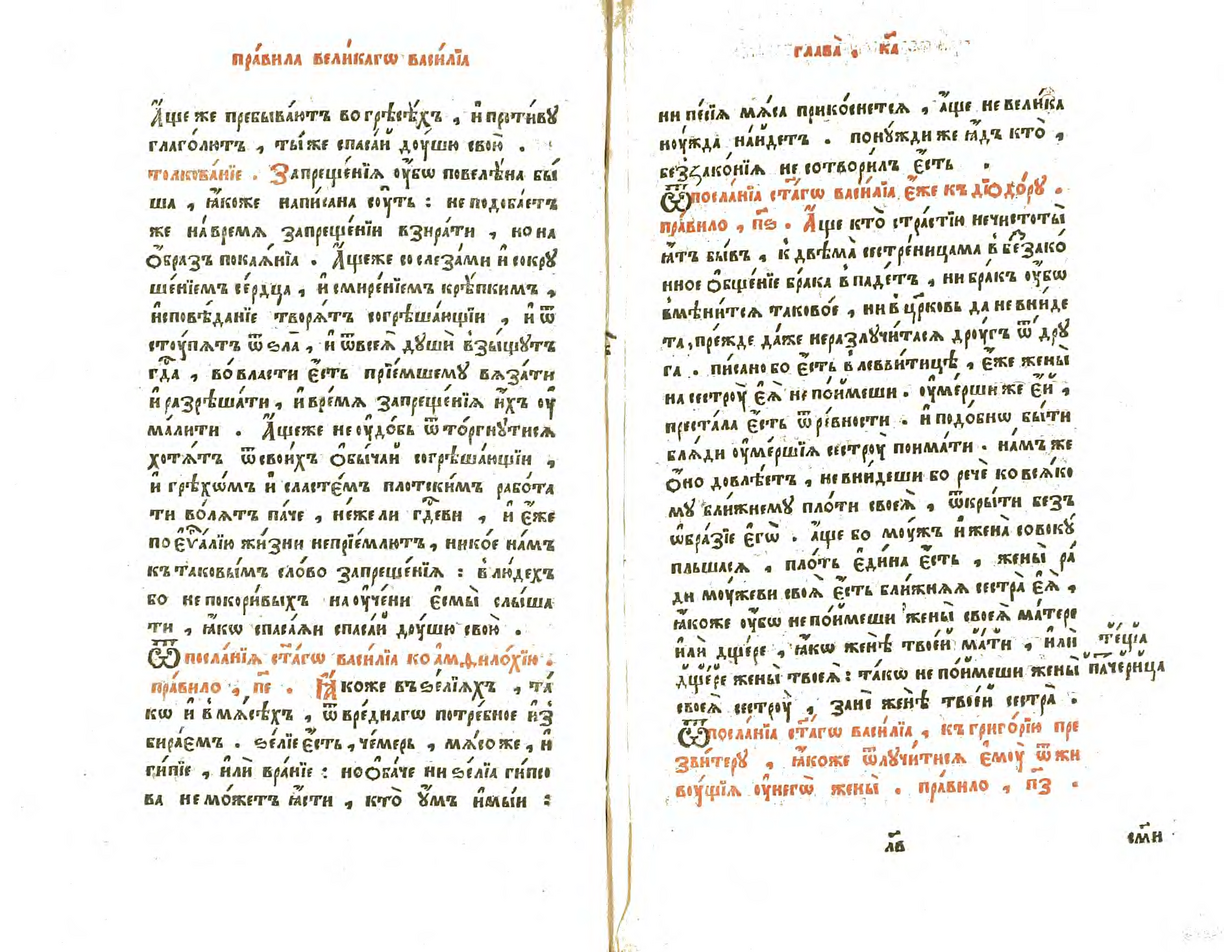 пра́вила вели́кагѡ васи́лїа
А҆́ще же пребыва́ютъ во грѣсѣ́хъ , и҆ проти́ву
глаго́лютъ , ты́ же спаса́й доу́шю свою̀ .
толкова́нїе . Запреще́нїѧ оу҆́бѡ повелѣ́на бы́
ша , ꙗ҆́коже написана соу́ть : не подоба́етъ
же на́ времѧ запреще́нїи взира́ти , но на
о҆́бразъ покаѧ́нїа . А҆́щеже со слеза́ми и҆ сокру
ше́нїемъ се́рдца , и҆ смире́нїемъ крѣ́пкимъ ,
и҆сповѣ́данїе творѧ́тъ согрѣша́ющїи , и҆ ѿ
стоу́пѧтъ ѿ ѕла̀ , и҆ ѿ всеѧ̀ душѝ взы́щутъ
гд҇а , во́ власти є҆́сть прїе́мшему вѧза́ти
и҆ разрѣша́ти , и҆ вре́мѧ запреще́нїѧ и҆́хъ оу҆
ма́лити . А҆́щеже не оу҆до́бь ѿто́ргнутисѧ
хотѧ́тъ ѿ свои́хъ о҆бы́чай согрѣша́ющїи ,
и҆ грѣхѡ́мъ и҆ сласте́мъ плотски́мъ рабо́та
ти во́лѧтъ па́че , не́жели гд҇еви , и҆ є҆́же
по є҆ѵⷢ҇а́лїю жи́зни непрїе́млютъ , нико́е на́мъ
къ таковы́мъ сло́во запреще́нїѧ : в лю́дехъ
бо непокори́выхъ наоу҆че́ни є҆смы̀ слы́ша
ти , ꙗ҆́кѡ спаса́ѧи спаса́й доу́шю свою̀ .
Ѿ посла́нїѧ ст҃а́гѡ васи́лїа ко а҆мфило́хїю .
пра́вило , п҃е . Ꙗ҆́коже въ ѕе́лїѧхъ , та́
кѡ и҆ в мѧ́сѣхъ , ѿ вре́днагѡ потре́бное и҆з̾
бира́емъ . ѕе́лїе є҆́сть , че́мерь , мѧ́со же , и҆
ги́пїе , и҆лѝ вра́нїе : но о҆ба́че ни ѕе́лїа ги́псо
ва не мо́жетъ ꙗ҆́сти , кто̀ оу҆́мъ и҆мы́и :
глава̀ , к҃а
ни пе́сїѧ мѧ́са прико́снетсѧ , а҆́ще не вели́ка
ноу́жда на́йдетъ . пону́жди же ꙗ҆́дъ кто̀ ,
беззако́нїѧ не сотвори́лъ є҆́сть .
Ѿ посла́нїа ст҃а́гѡ васи́лїа , є҆́же къ дїо́дору .
пра́вило , п҃ѕ . А҆́ще кто̀ стра́стїю нечистоты̀
ꙗ҆́тъ бы́въ , к двѣма̀ сестре́ницама в беззако́
нное о҆бще́нїе бра́ка впаде́тъ , ни бра́къ оу҆́бѡ
вмѣни́тсѧ таково́е , ни в цр҃ковь да не вни́де
та , пре́жде да́же неразлучи́тасѧ дроу́гъ ѿ дру́
га . пи́сано бо є҆́сть в левви́тицѣ , є҆́же жены̀
на сестроу̀ є҆ѧ̀ не по́ймеши . оу҆ме́рши же є҆́й ,
преста́ла є҆́сть ѿ ре́вности . и҆ подо́бнѡ бы́ти
блѧ́ди оу҆ме́ршїѧ сестроу̀ поима́ти . на́мъ же
о҆но̀ довлѣ́етъ , не вни́деши бо речѐ ко всѧ́ко
му бли́жнему пло́ти своеѧ̀ , ѿкры́ти безъ
ѡ҆бра́зїе є҆гѡ̀ . а҆́ще бо моу́жъ и҆ жена̀ совоку
пльшасѧ , пло́ть є҆ди́на є҆́сть , жены̀ ра́
ди моу́жеви своѧ̀ є҆́сть бли́жнѧѧ сестра̀ є҆ѧ̀ ,
ꙗ҆́коже оу҆́бѡ не по́ймеши жены̀ своеѧ̀ ма́тере
и҆лѝ дще́ре , ꙗ҆́кѡ женѣ̀ твое́й ма́ти , и҆лѝ
дще́ре жены̀ твоеѧ̀ : та́кѡ не по́ймеши жены̀
своеѧ̀ сестроу̀ , занѐ женѣ̀ твое́й сестра̀ .
те́ща
па́черица
Ѿ посла́нїа ст҃а́гѡ васи́лїа , къ григо́рїю пре
зви́теру , ꙗ҆́коже ѿлучи́тисѧ є҆моу̀ ѿ жи
воу́щїѧ оу҆ негѡ̀ жены̀ . пра́вило , п҃з .
л҃в
см҃и